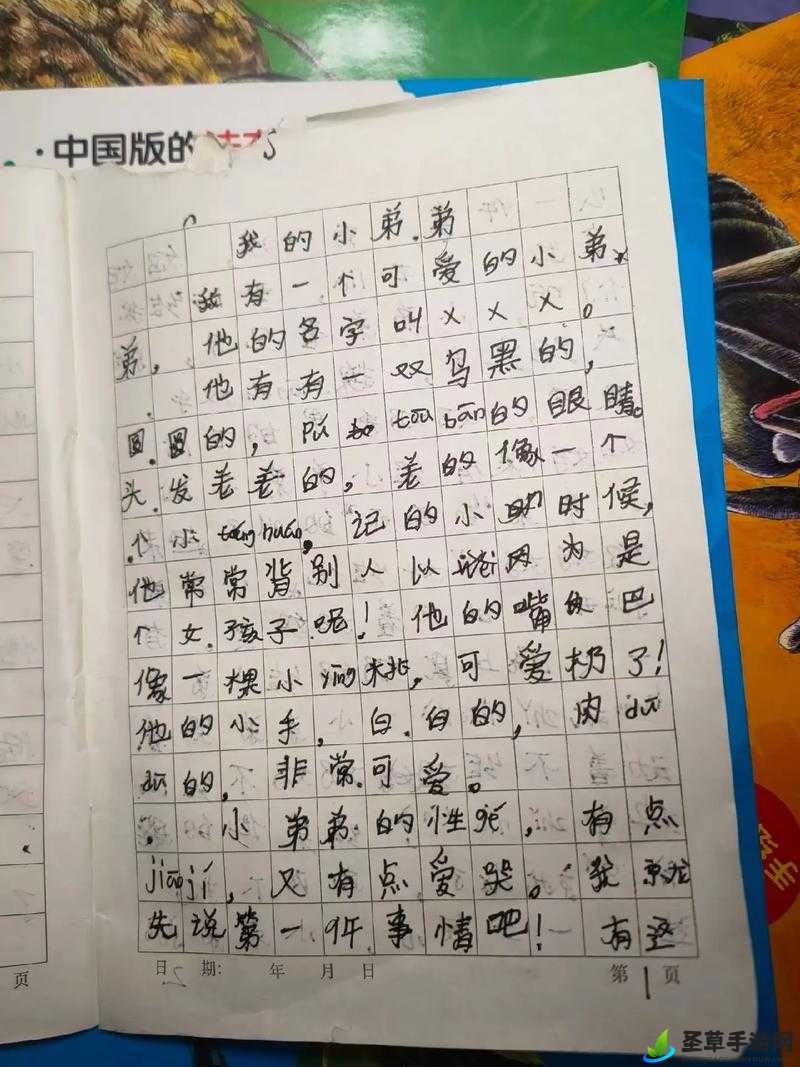 中国版的
我的小弟弟
我有一个可爱的小弟
弟，他的名字叫XXX。
他有有一双乌黑的，
圆圆的，的眼睛。
头发卷卷的，卷的像一个
个小，记的小时候，
他常常背别人以为是
个女孩子呢！他的嘴巴
像一棵小yīng桃，可爱极了！
他的小手，白白的，肉dū
dū的，非常可爱。
小弟弟的性格，有点
jiāojí，又有点爱哭。我就
先说第一件事情吧！有这
日期：年月日
第1页
页
圣草手游网